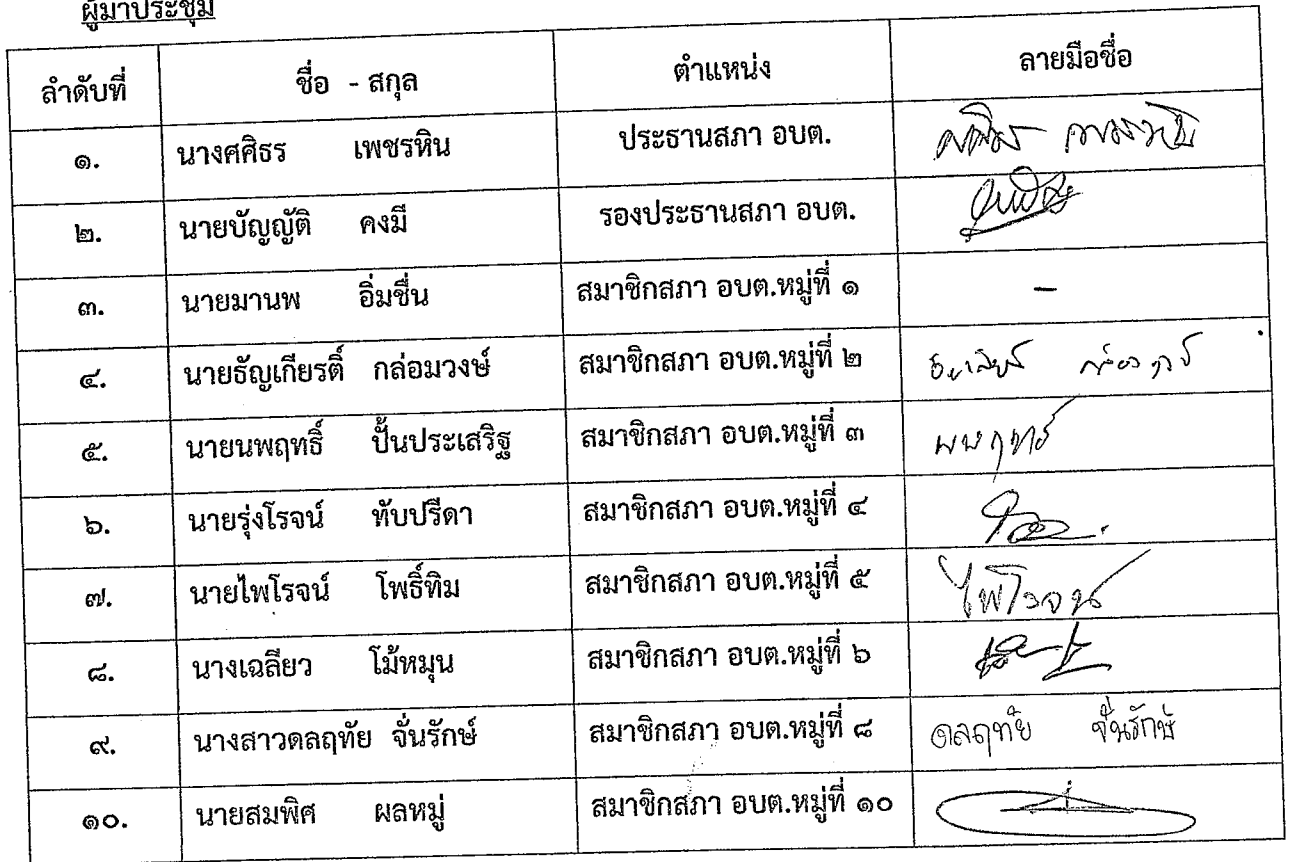 ผู้มาประชุม
ลำดับที่ ชื่อ - สกุล ตำแหน่ง ลายมือชื่อ
๑. นางศศิธร เพชรหิน ประธานสภา อบต.
๒. นายบัญญัติ คงมี รองประธานสภา อบต.
๓. นายมานพ อิ่มชื่น สมาชิกสภา อบต.หมู่ที่ ๑ -
๔. นายธัญเกียรติ์ กล่อมวงษ์ สมาชิกสภา อบต.หมู่ที่ ๒
๕. นายนพฤทธิ์ ปั้นประเสริฐ สมาชิกสภา อบต.หมู่ที่ ๓
๖. นายรุ่งโรจน์ ทับปรีดา สมาชิกสภา อบต.หมู่ที่ ๔
๗. นายไพโรจน์ โพธิ์ทิม สมาชิกสภา อบต.หมู่ที่ ๕ ไพโรจน์
๘. นางเฉลียว โม้หมุน สมาชิกสภา อบต.หมู่ที่ ๖
๙. นางสาวดลฤทัย จั่นรักษ์ สมาชิกสภา อบต.หมู่ที่ ๘ ดลฤทัย จั่นรักษ์
๑๐. นายสมพิศ ผลหมู่ สมาชิกสภา อบต.หมู่ที่ ๑๐